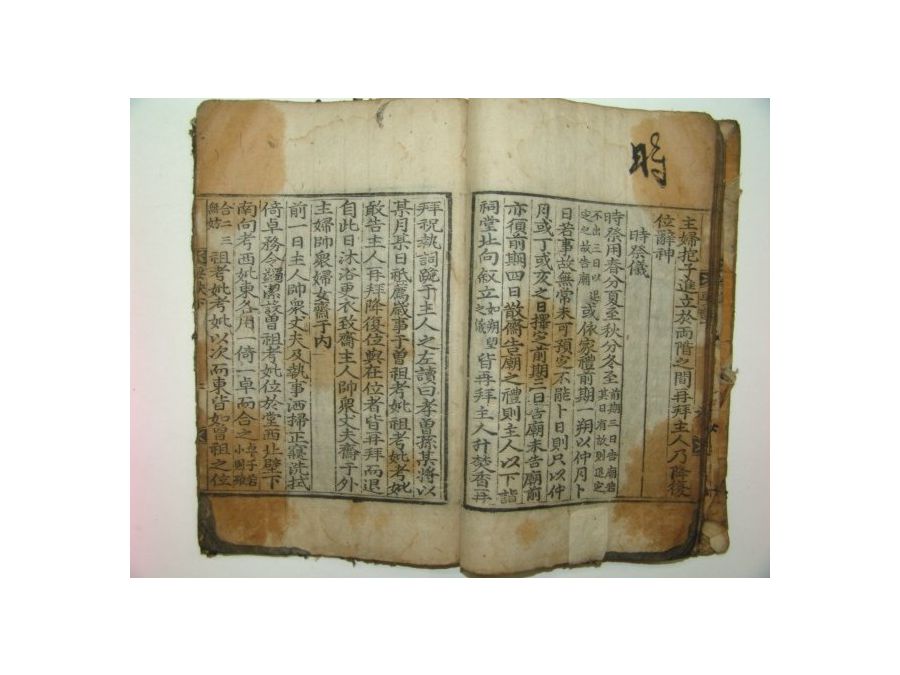 時
主婦抱子進立於兩階之間再拜主人乃降復
位辭神
時祭儀
時祭用春分夏至秋分冬至前期三日告廟若其日有故則退定不出三日以退定之故告廟或依家禮前期一朔以仲月卜
日若事故無常未可預定不能卜日則只以仲
月或丁或亥之日擇定之前期三日告廟未告廟前
亦須前期四日散齊告廟之禮則主人以下詣
祠堂北向叙立如朔望之儀皆再拜主人升焚香再
拜祝執詞跪于主人之左讀曰孝曾孫某將以
某月某日祗薦歲事于曾祖考妣祖考妣考妣
敢告主人再拜降復位與在位者皆再拜而退
自此日沐浴更衣致齋主人帥衆丈夫齋于外
主婦帥衆婦女齋于内
前一日主人帥衆丈夫及執事洒掃正寢洗拭
倚卓務令蠲潔設曾祖考妣位於堂西北壁下
南向考西妣東各用一倚一卓而合之
合二三無妨祖考妣考妣以次而東皆如曾祖之位